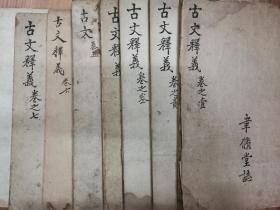 古文釋義 卷之壹
堂誌
古文釋義 卷之貳
古文釋義 卷之叁
古文釋義
古文
古文釋義 卷六
古文釋義 卷之七